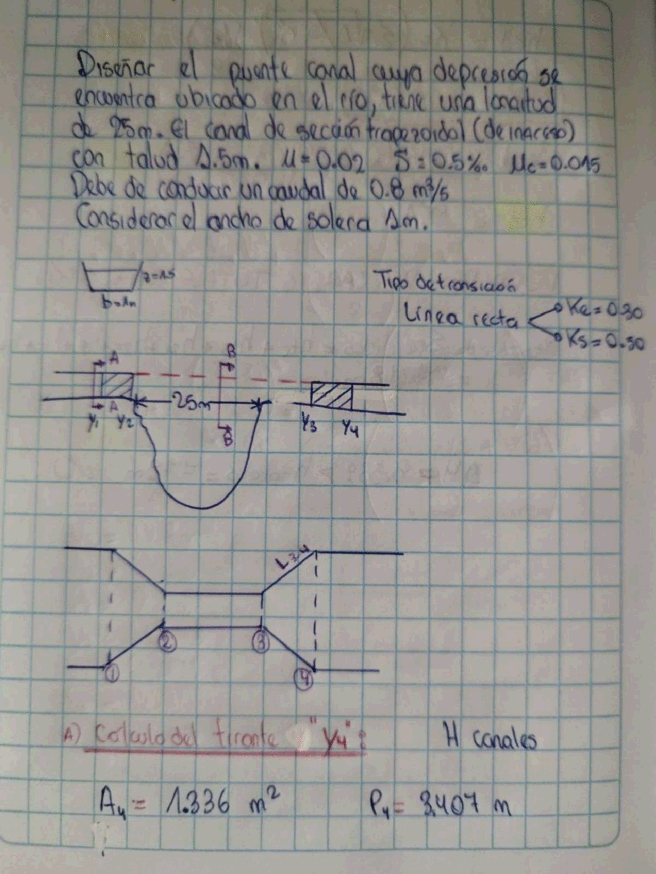 Diseñar el puente canal cuya depresión se
encuentra ubicado en el río, tiene una longitud
de 25m. El canal de sección trapezoidal (de ingreso)
con talud 1.5m. M=0.02 S=0.5‰ Mc=0.015
Debe de conducir un caudal de 0.8 m³/s
Considerar el ancho de solera 1m.
z=1.5
b=1m
Tipo de transición
Línea recta
Ke=0.30
Ks=0.50
A
B
25m
A
B
Y1 Y2
Y3 Y4
L3-4
② ③
① ④
A) Calculo del tirante "Y4":
H canales
A4= 1.336 m²
P4= 3.407 m